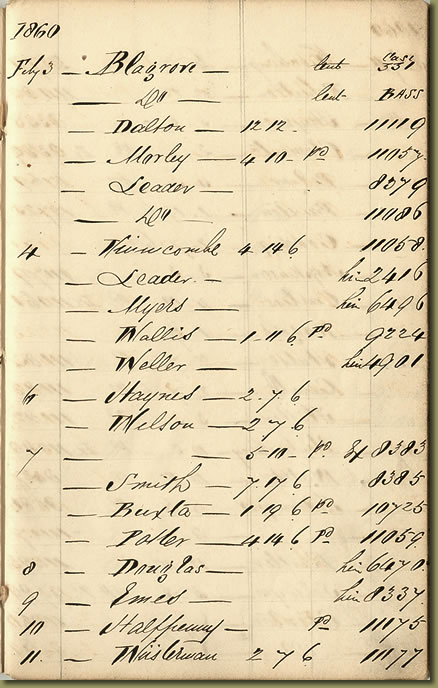 1860
Feby 3 — Blagrove — lent Case 351
— Do — lent BASS
— Dalton — 12 12 — 11119
— Morley — 4 10 — pd 11057
— Leader — 8379
— Do — 11086
4 — Vinnicombe 4 14 6 11058
— Leader — hire 2416
— Myers — hire 6496
— Wallis — 1 11 6 pd 9224
— Weller — hire 4901
6 — Haynes — 2 7 6
— Wilson — 2 7 6
7 — — 5 10 — pd Ex 8383
— Smith — 7 17 6 8385
— Buxta — 1 19 6 pd 10725
— Potter — 4 14 6 pd 11059
8 — Douglas — hire 6470
9 — Emes — hire 8337
10 — Halfpenny — pd 11175
11 — Wasterman 2 7 6 11177